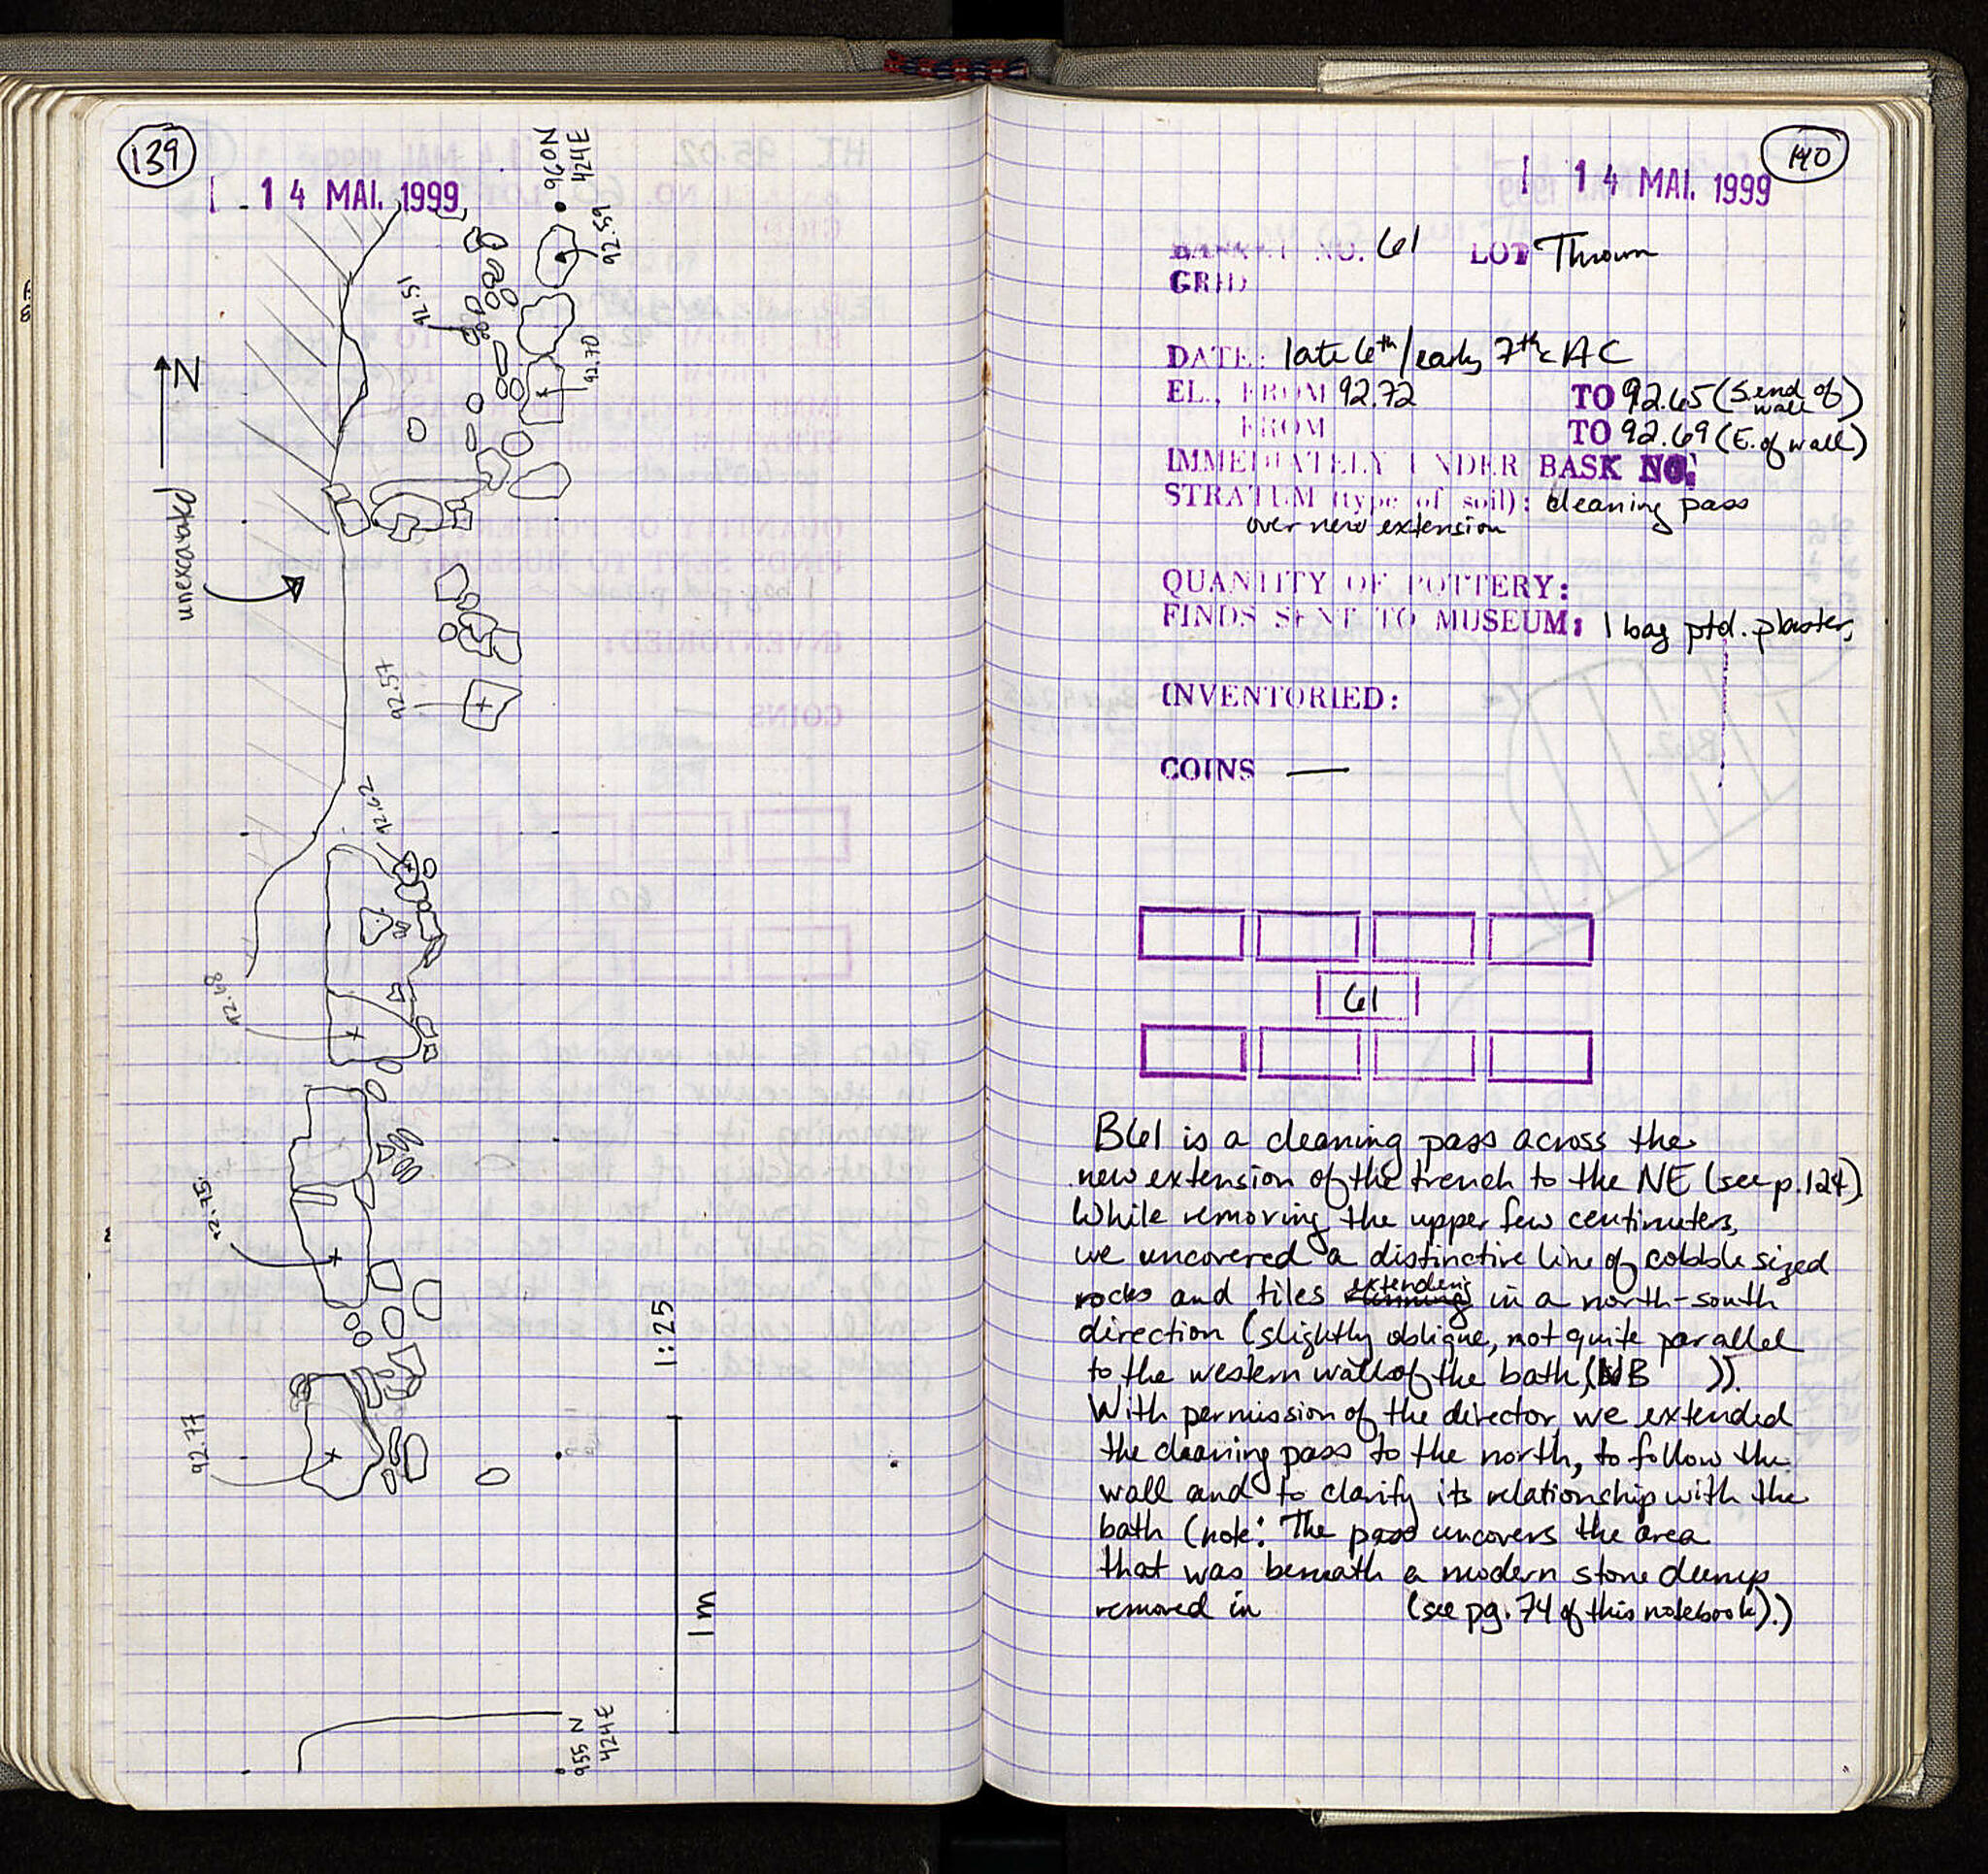 139
14 MAI. 1999
960N
424E
92.59
92.51
92.70
N
unexcavated
92.57
92.62
92.68
92.75
92.77
1:25
1 m
955 N
424E
140
14 MAI. 1999
BASKET NO. 61 LOT Thrown
GRID
DATE: late 6th/early 7th c AC
EL., FROM 92.72 TO 92.65 (S end of wall)
FROM TO 92.69 (E. of wall)
IMMEDIATELY UNDER BASK NO:
STRATUM (type of soil): cleaning pass
over new extension
QUANTITY OF POTTERY:
FINDS SENT TO MUSEUM: 1 bag ptd. plaster,
INVENTORIED:
COINS —
61
B61 is a cleaning pass across the
new extension of the trench to the NE (see p.124).
While removing the upper few centimeters,
we uncovered a distinctive line of cobble sized
rocks and tiles extending in a north-south
direction (slightly oblique, not quite parallel
to the western wall of the bath, (NB )).
With permission of the director, we extended
the cleaning pass to the north, to follow the
wall and to clarify its relationship with the
bath (note: The pass uncovers the area
that was beneath a modern stone dump
removed in (see pg. 74 of this notebook).)